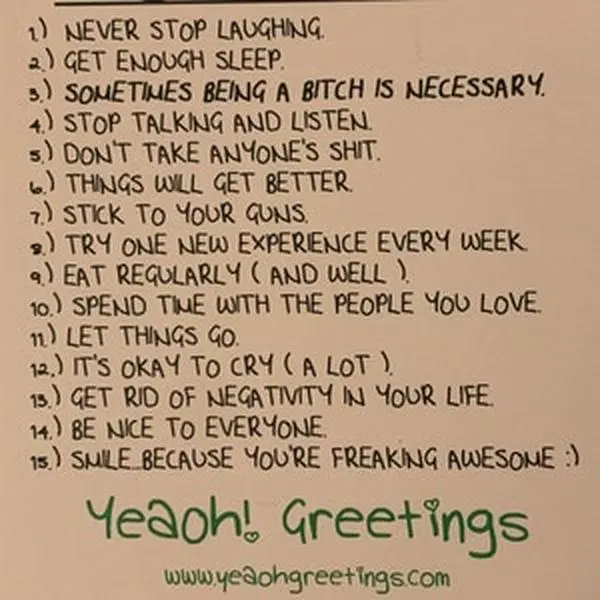 1.) NEVER STOP LAUGHING.
2.) GET ENOUGH SLEEP.
3.) SOMETIMES BEING A BITCH IS NECESSARY.
4.) STOP TALKING AND LISTEN.
5.) DON'T TAKE ANYONE'S SHIT.
6.) THINGS WILL GET BETTER.
7.) STICK TO YOUR GUNS.
8.) TRY ONE NEW EXPERIENCE EVERY WEEK.
9.) EAT REGULARLY ( AND WELL ).
10.) SPEND TIME WITH THE PEOPLE YOU LOVE.
11.) LET THINGS GO.
12.) IT'S OKAY TO CRY ( A LOT ).
13.) GET RID OF NEGATIVITY IN YOUR LIFE.
14.) BE NICE TO EVERYONE.
15.) SMILE...BECAUSE YOU'RE FREAKING AWESOME :)
Yeaoh! Greetings
www.yeaohgreetings.com